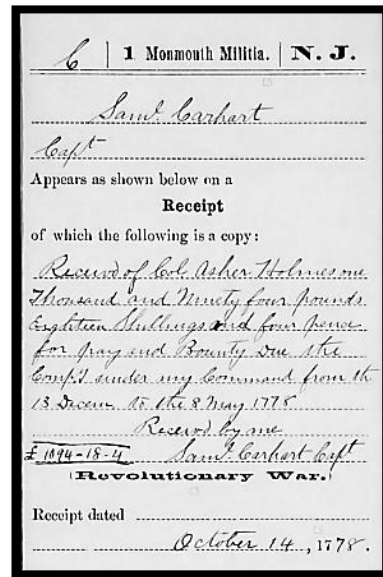 C | 1 Monmouth Militia. | N. J.
Saml. Carhart
Capt
Appears as shown below on a
Receipt
of which the following is a copy:
Receivd of Col Asher Holmes one
Thousand and Ninety four pounds
Eighteen Shillings and four pence
for pay and Bounty Due the
Comp'y under my Command from th
13 Decem to the 8 May 1778
Receivd by me
£ 1094-18-4 Saml. Carhart Capt
(Revolutionary War.)
Receipt dated
October 14, 1778.